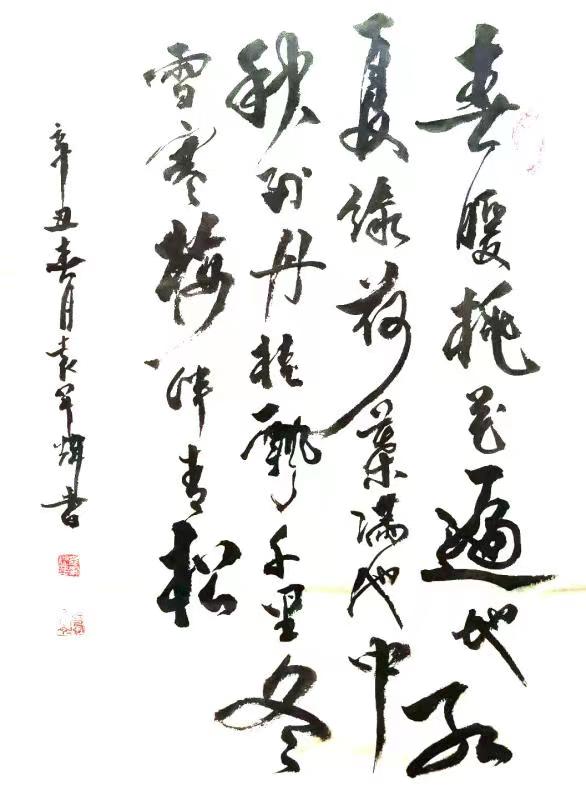 春暖桃花遍地红
夏绿荷葉满池中
秋到丹桂飘千里冬
雪寒梅伴青松
辛丑春月袁军辉书